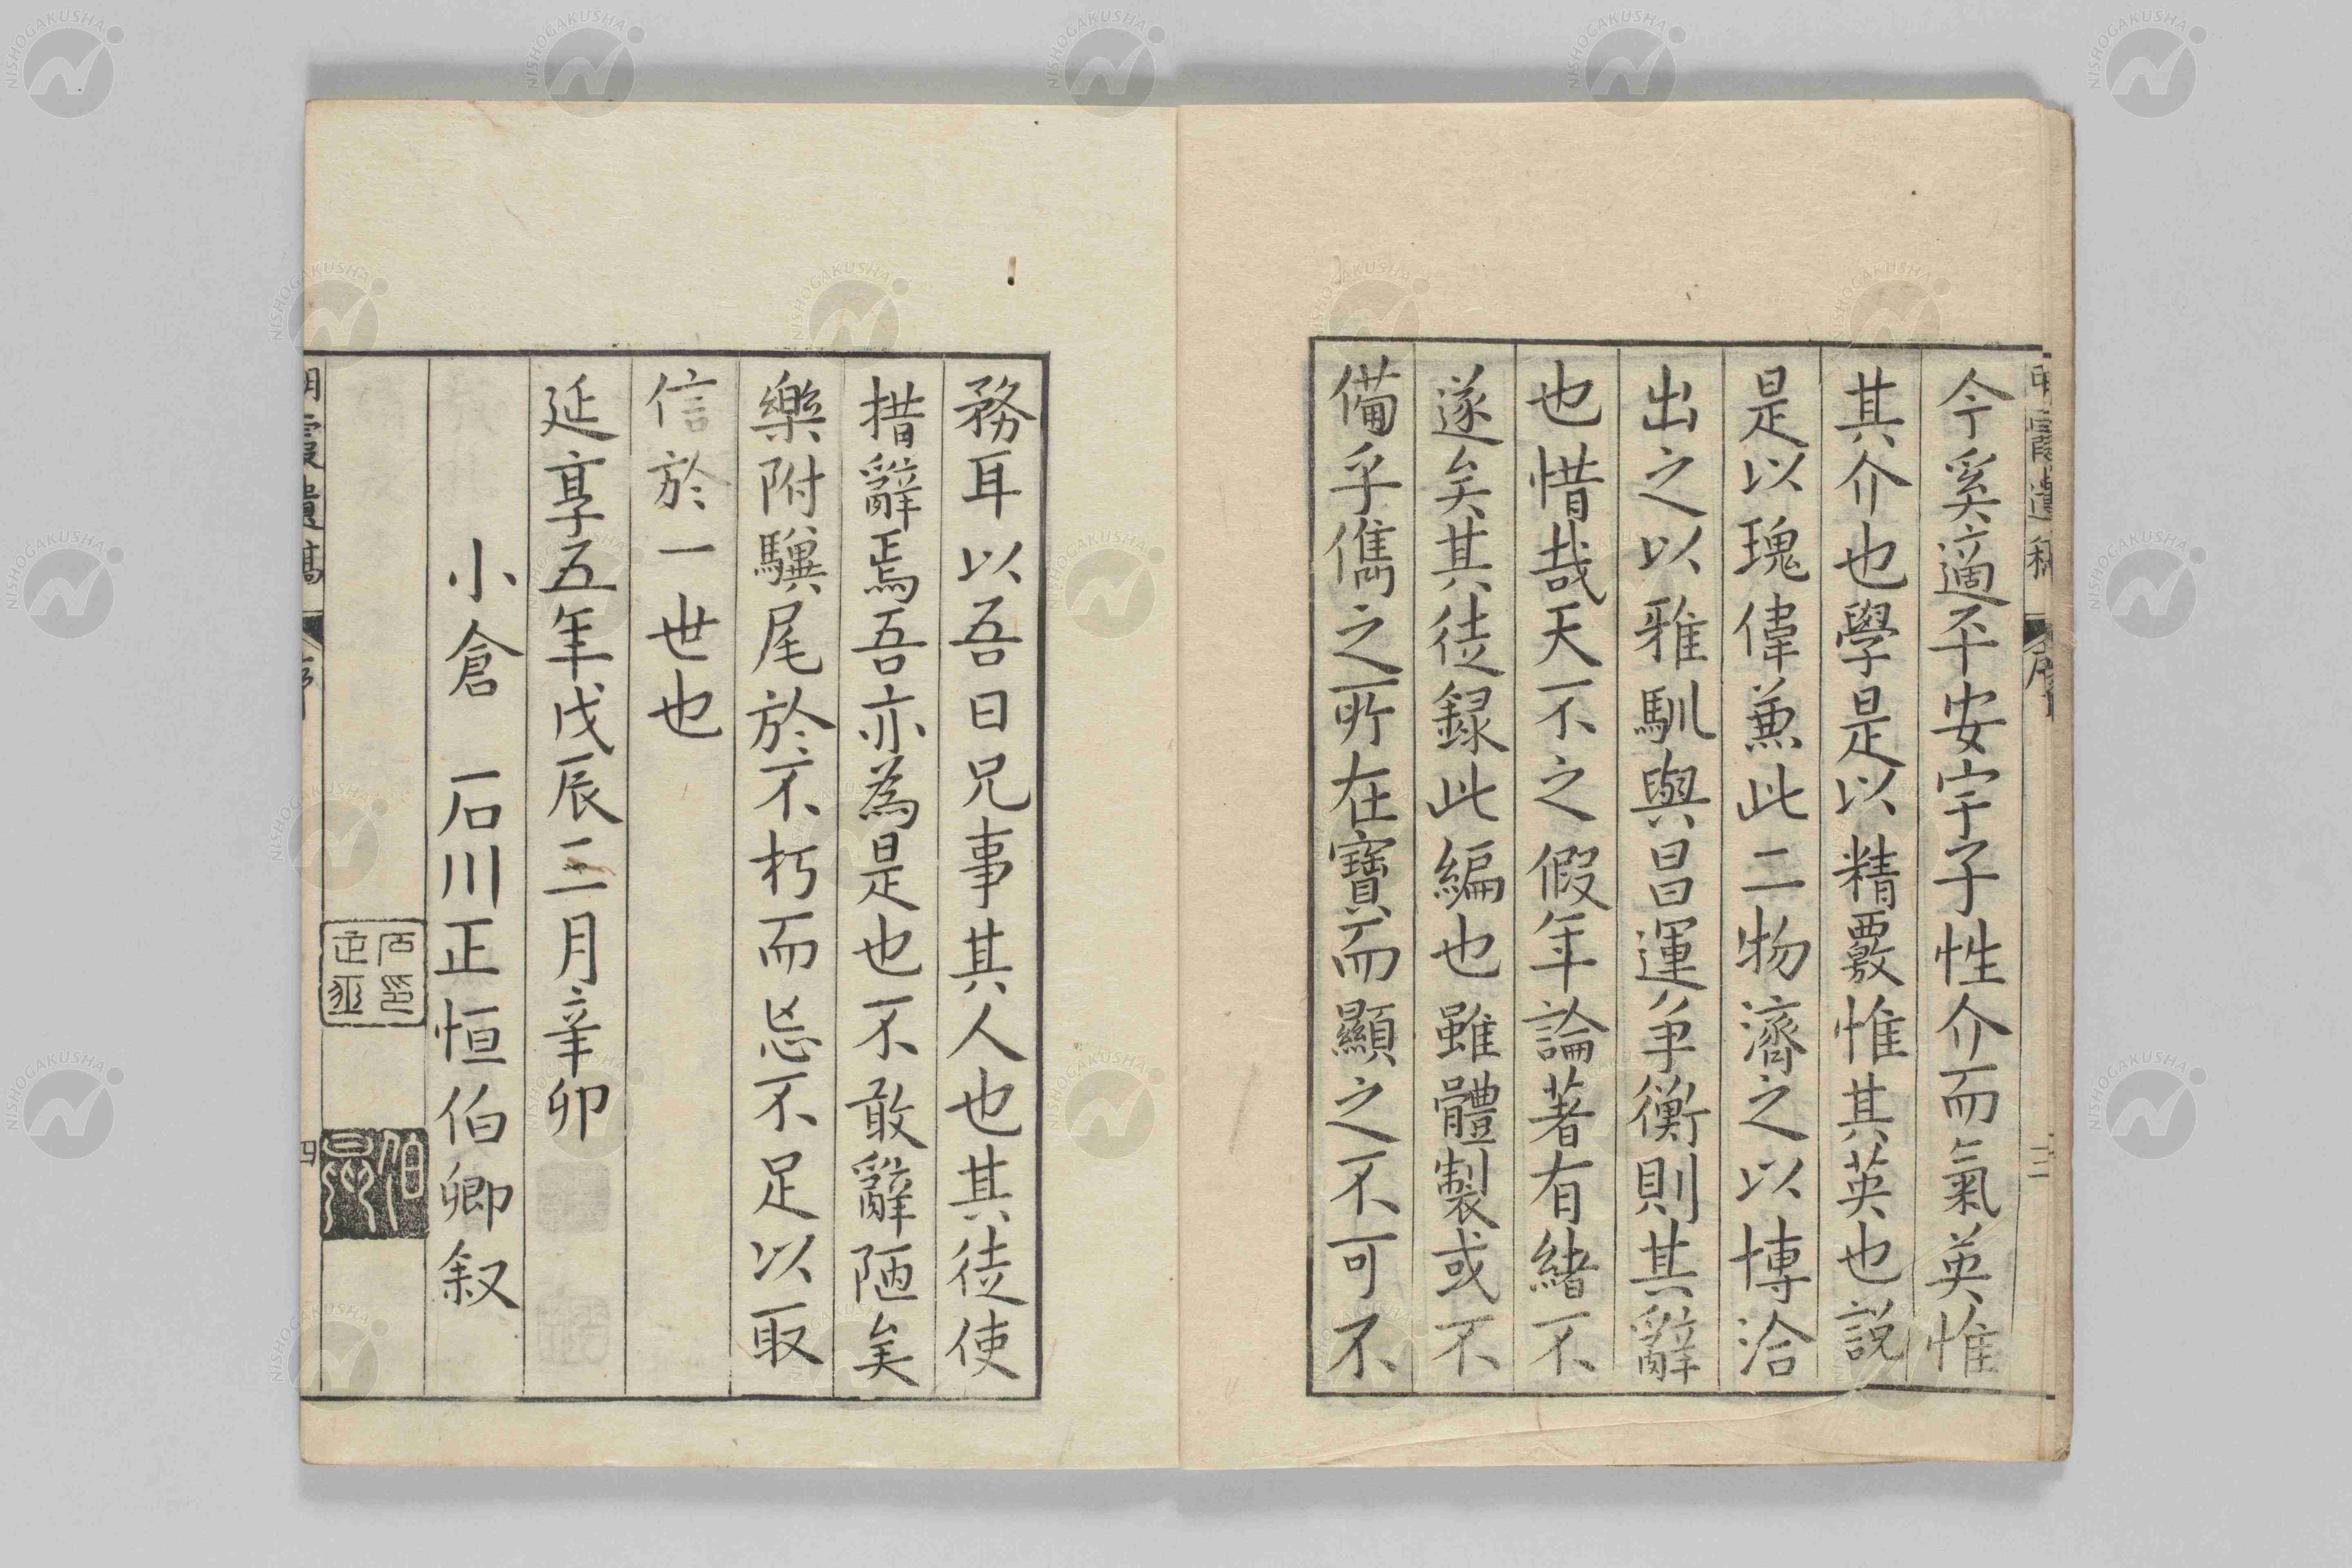 今奚適平安宇子性介而氣英惟
其介也學是以精覈惟其英也説
是以瑰偉兼此二物濟之以博洽
出之以雅馴與昌運爭衡則其辭
也惜哉天不之假年論著有緒不
遂矣其徒録此編也雖體製或不
備乎儁之所在寶而顯之不可不
務耳以吾曰兄事其人也其徒使
措辭焉吾亦為是也不敢辭陋矣
樂附驥尾於不朽而忘不足以取
信於一世也
延享五年戊辰三月辛卯
小倉 石川正恒伯卿叙
霞遺稿
四
NISHOGAKUSHA